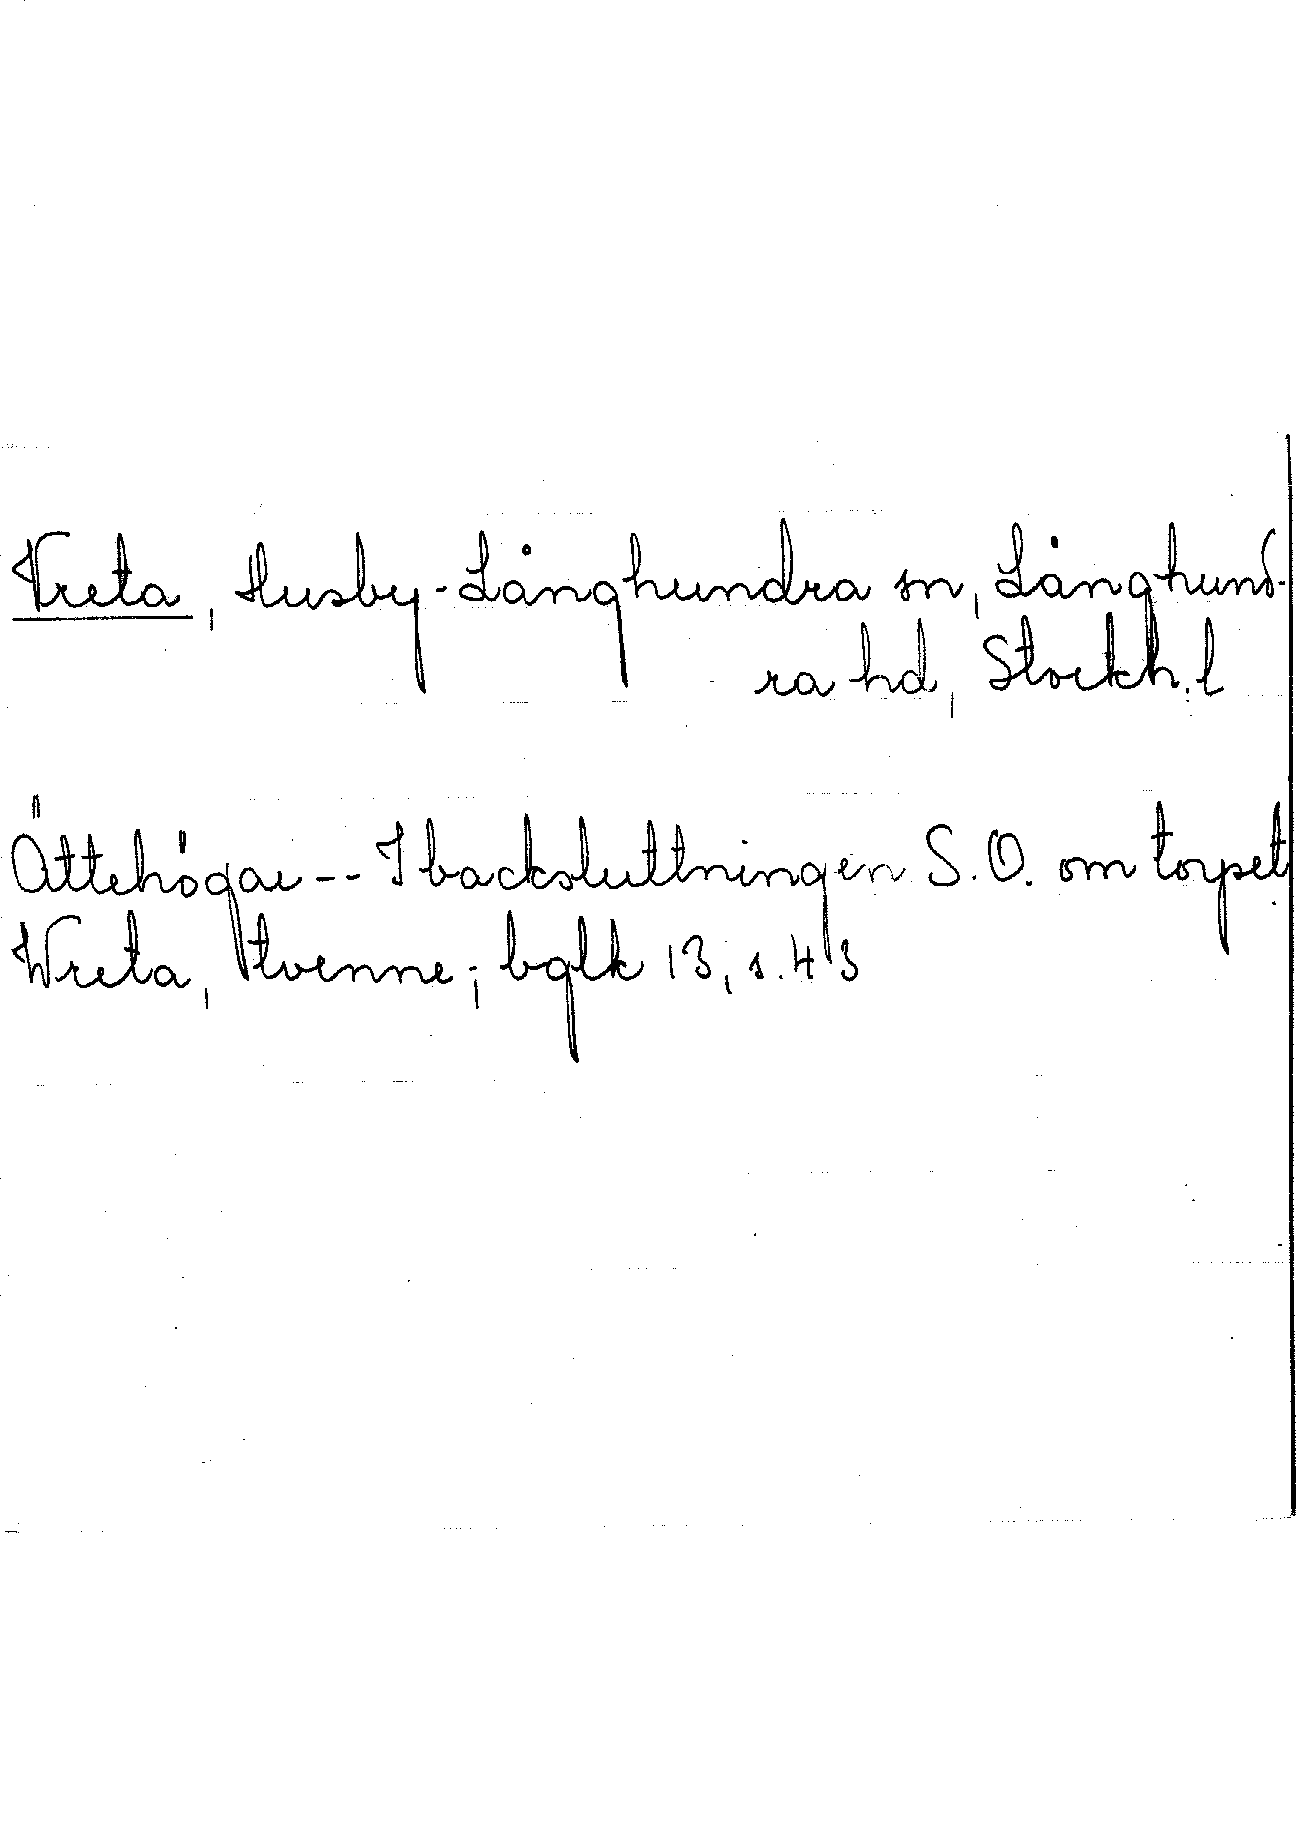 Vreta, Husby-Långhundra sn, Långhund-
ra hd, Stockh. l
Ättehögar -- I backsluttningen S.O. om torpet
Wreta, tvenne; bglk 13, s. 43